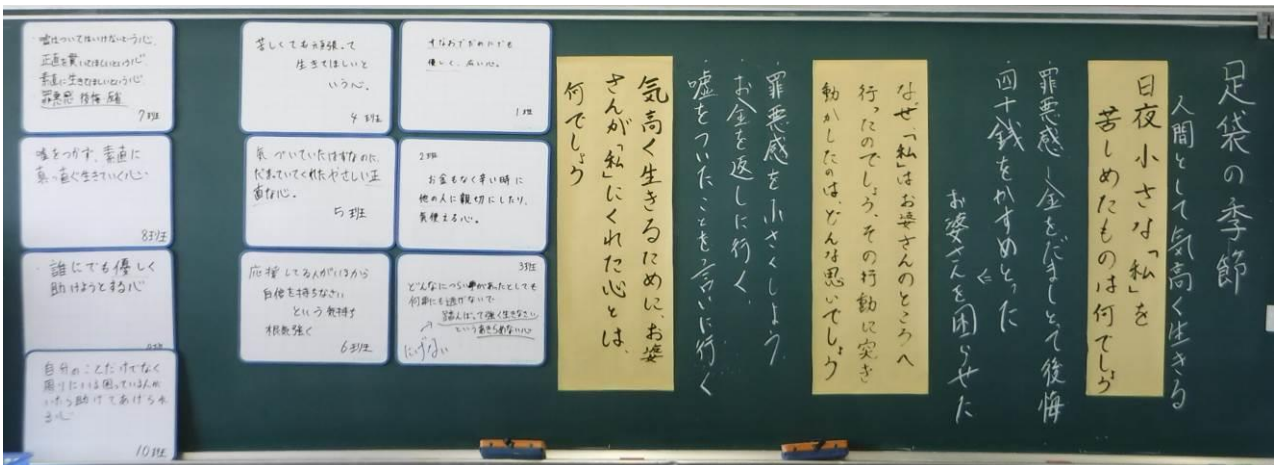 足袋の季節
人間として気高く生きる
日夜小さな「私」を
苦しめたものは何でしょう
罪悪感←金をだましとって後悔
四十銭をかすめとった
お婆さんを困らせた
なぜ「私」はお婆さんのところへ
行ったのでしょう、その行動に突き
動かしたのは、どんな思いでしょう
・罪悪感を小さくしよう
・お金を返しに行く、
・嘘をついたことを言いに行く
気高く生きるために、お婆
さんが「私」にくれた心とは、
何でしょう
すなおでだれにでも
優しく、広い心。
1班
2班
お金もなく辛い時に
他の人に親切にしたり、
気使える心。
3班
どんなにつらい事があったとしても
何事にも逃げないで
踏んばって強く生きなさい
というあきらめない心
にげない
苦しくても頑張って
生きてほしいと
いう心。
4班
気づいていたはずなのに、
だまっていてくれたやさしい正
直な心。
5班
応援してる人がいるから
自信を持ちなさい
という気持ち
根気強く
6班
嘘はついてはいけないという心
正直を貫いてほしいという心
素直に生きてほしいという心
罪悪感 後悔
7班
嘘をつかず、素直に
真っ直ぐ生きていく心
8班
誰にでも優しく
助けようとする心
自分のことだけでなく
周りにいる困っている人が
いたら助けてあげられ
る心
10班